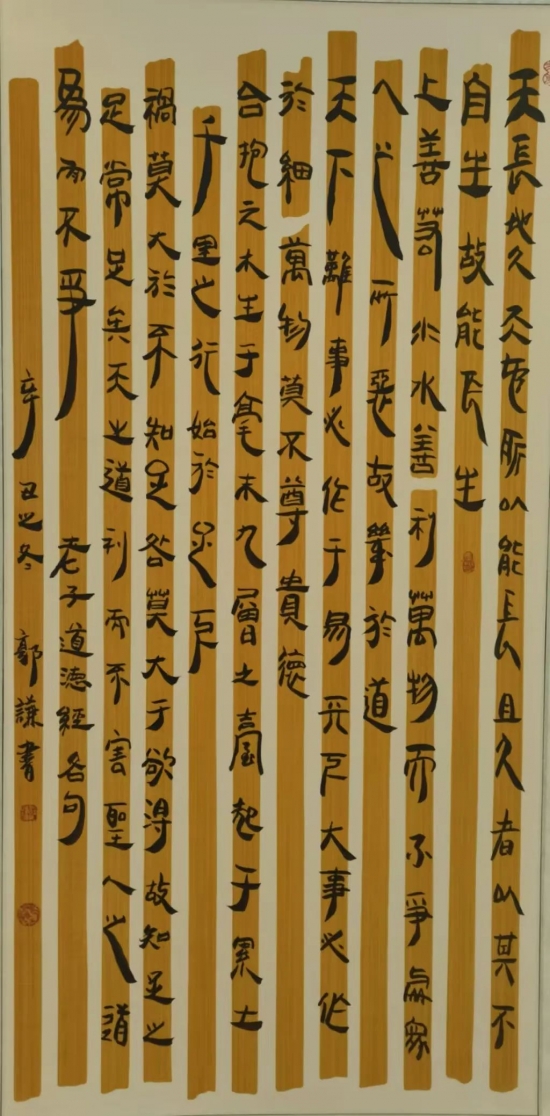 天長地久天地所以能長且久者以其不
自生故能長生
上善若水水善利萬物而不爭處眾
人之所惡故幾於道
天下難事必作于易天下大事必作
於細萬物莫不尊貴德
合抱之木生于毫末九層之臺起于累土
千里之行始於足下
禍莫大於不知足咎莫大于欲得故知足之
足常足矣天之道利而不害聖人之道
為而不爭 老子道德經名句
辛丑之冬 郭謙書